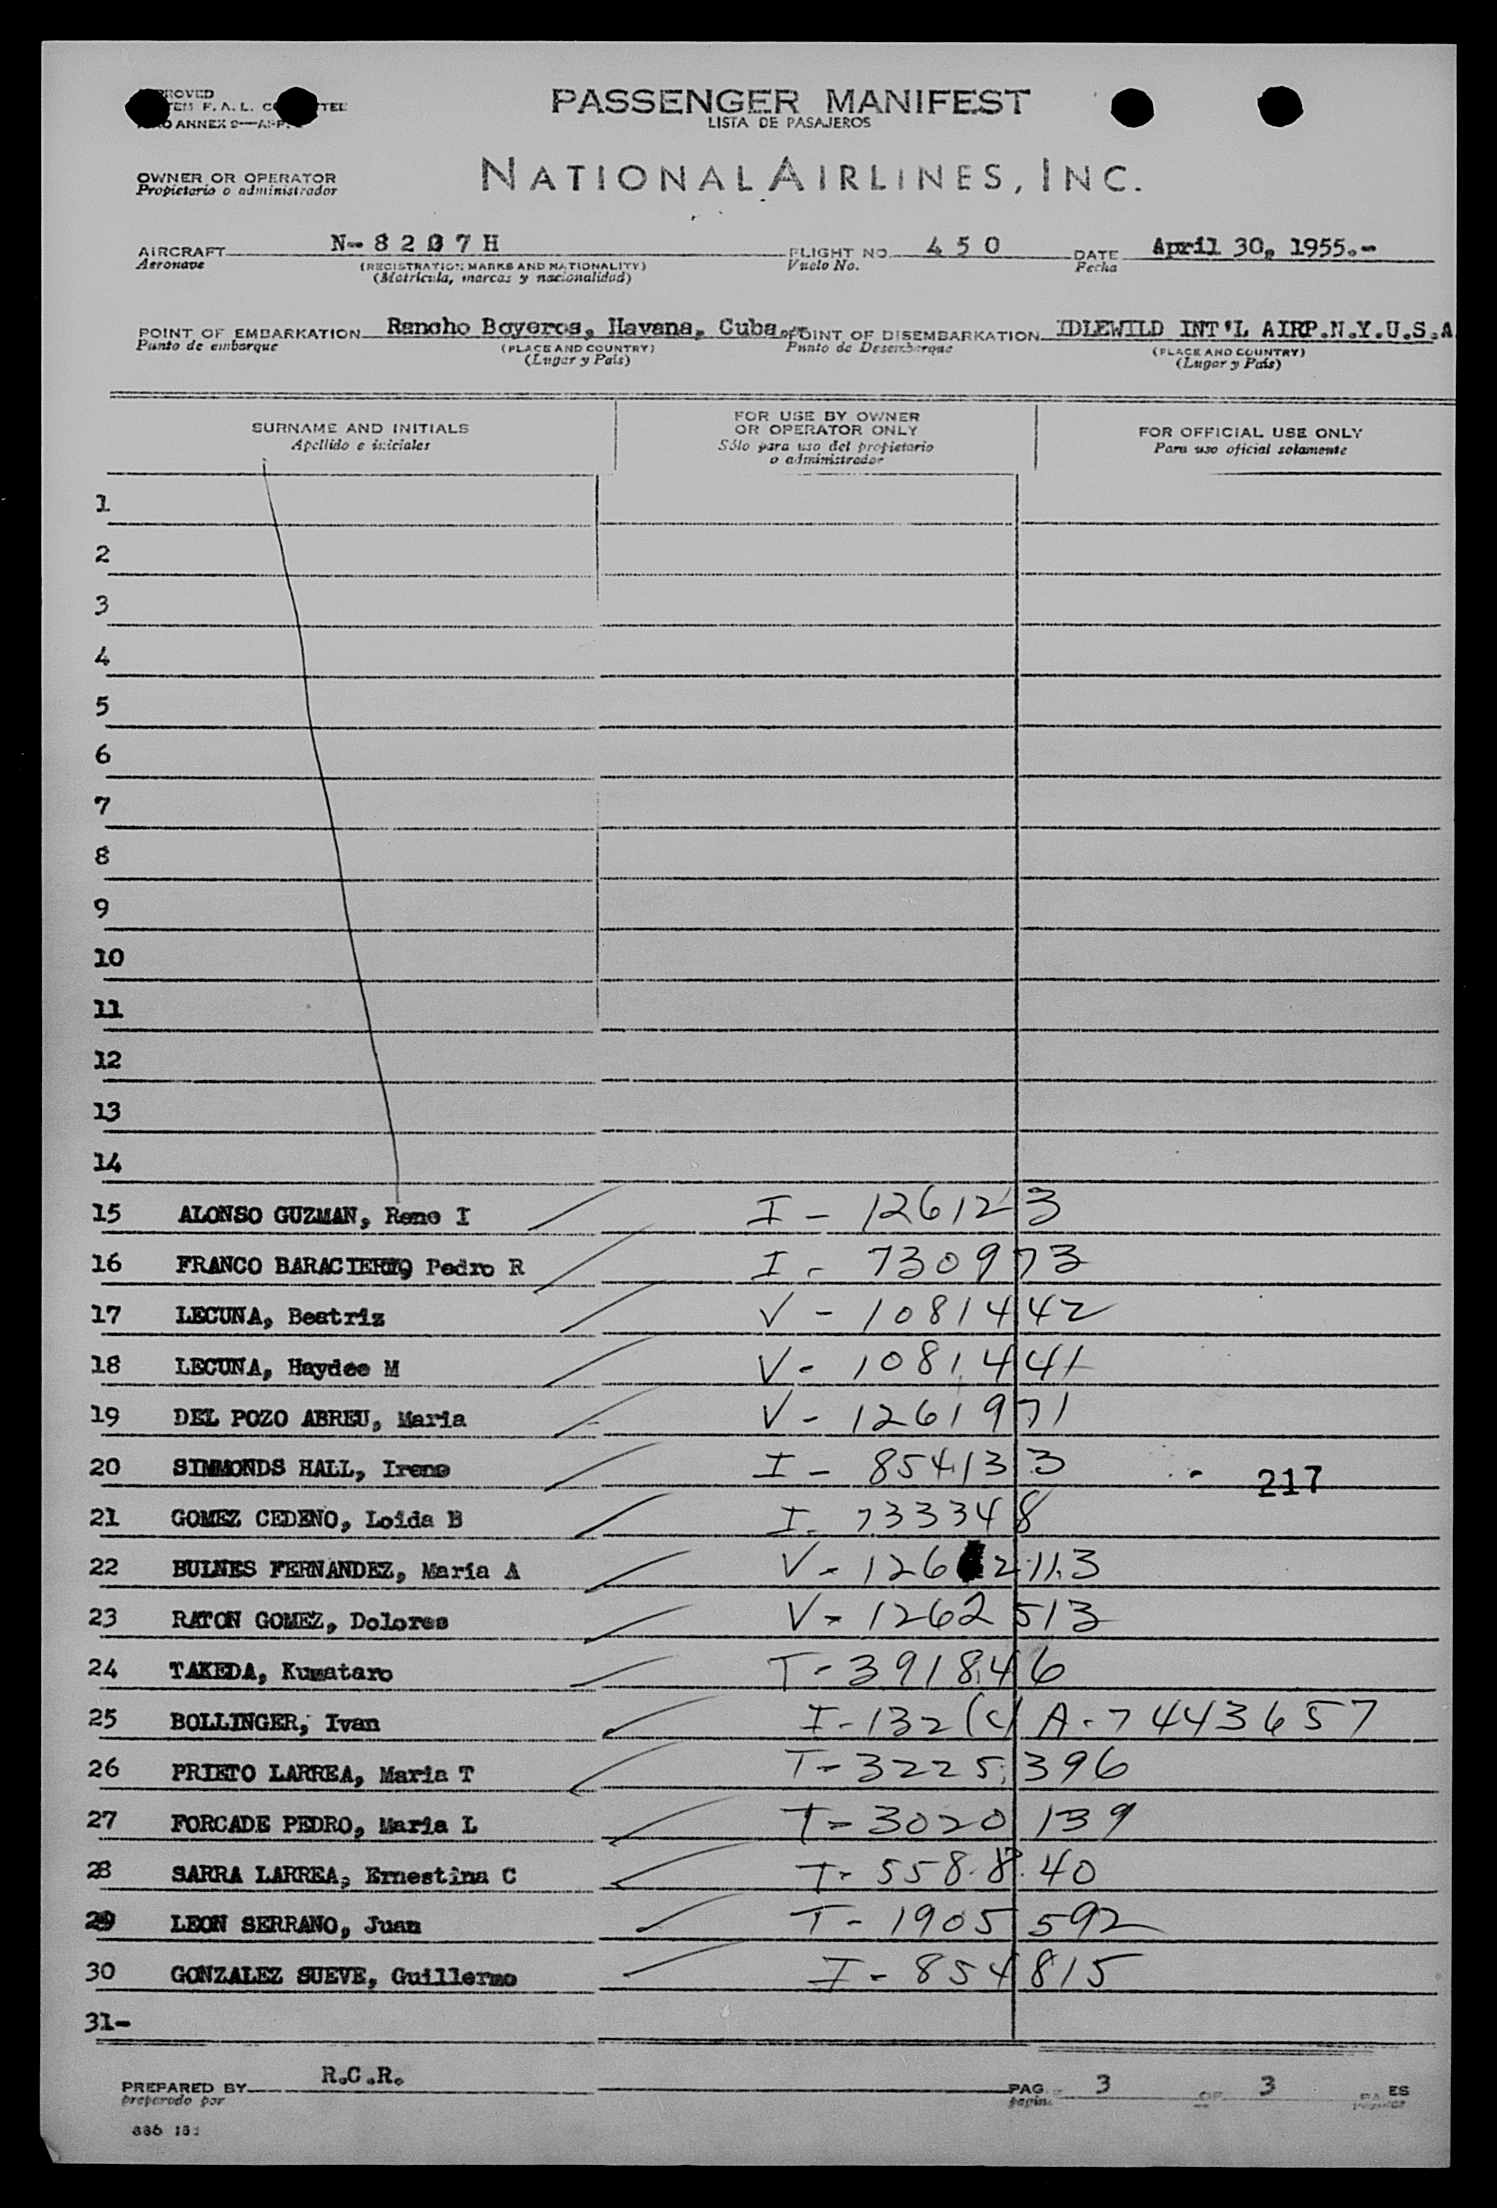 PASSENGER MANIFEST
LISTA DE PASAJEROS
ANNEX 9—APP.
OWNER OR OPERATOR
Propietario o administrador
NATIONAL AIRLINES, INC.
AIRCRAFT N-8207H FLIGHT NO. 450 DATE April 30, 1955.-
Aeronave (REGISTRATION MARKS AND NATIONALITY) Vuelo No. Fecha
(Matrícula, marcas y nacionalidad)
POINT OF EMBARKATION Rancho Boyeros, Havana, Cuba.- POINT OF DISEMBARKATION IDLEWILD INT'L AIRP.N.Y.U.S.A
Punto de embarque (PLACE AND COUNTRY) Punto de Desembarque (PLACE AND COUNTRY)
(Lugar y País) (Lugar y País)
SURNAME AND INITIALS
Apellido e iniciales
FOR USE BY OWNER
OR OPERATOR ONLY
Sólo para uso del propietario
o administrador
FOR OFFICIAL USE ONLY
Para uso oficial solamente
1
2
3
4
5
6
7
8
9
10
11
12
13
14
15 ALONSO GUZMAN, Rene I I - 126123
16 FRANCO BARACIERTO Pedro R I - 730973
17 LECUNA, Beatriz V - 1081442
18 LECUNA, Haydee M V - 1081441
19 DEL POZO ABREU, Maria V - 1261971
20 SIMMONDS HALL, Irene I - 854133 217
21 GOMEZ CEDENO, Loida B I. 733348
22 BULNES FERNANDEZ, Maria A V - 1262113
23 RATON GOMEZ, Dolores V - 1262513
24 TAKEDA, Kumataro T - 391846
25 BOLLINGER, Ivan I-132 (c) A-7443657
26 PRIETO LARREA, Maria T T - 3225396
27 FORCADE PEDRO, Maria L T - 3020139
28 SARRA LARREA, Ernestina C T - 558840
29 LEON SERRANO, Juan T - 1905592
30 GONZALEZ SUEVE, Guillermo I - 854815
31-
PREPARED BY R.C.R. PAGE 3 OF 3
preparado por página